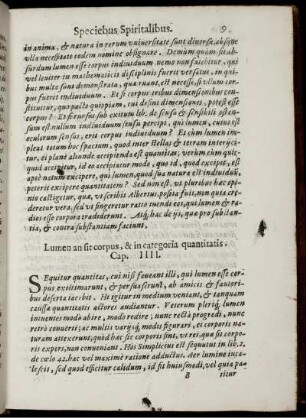 Speciebus Spiritalibus. 9.
in anima, & natura in rerum vniuersitate sunt diuersæ, absque
vlla necessitate eodem nomine obsignare. Demum quàm sit ab-
surdum lumen esse corpus indiuiduum nemo non
vel leuiter in mathematicis disciplinis fuerit versatus, in qui-
bus multa sunt demonstrata, quæ ruant, est necesse, si vllum cor-
pus fuerit indiuiduum. Et si corpus tribus dimensionibus con-
stituitur, quo pacto quippiam, cui desint dimensiones, potest esse
corpus? Et si rursus sub cælum lib. de sensu & sensilibus osten-
sum est nullum indiuiduum sensu percipi, qui lumen, cuius est
oculorum sensus, erit corpus indiuiduum? Et cùm lumen im-
pleat totum hoc spacium, quod inter stellas & terram interijci-
tur, ei planè aliunde accipienda est quantitas; verùm cùm quic-
quid accipitur, id eo accipiatur modo, quo id, quod excipit, est
aptè natum excipere, qui lumen, quod sua natura est indiuiduum,
poterit excipere quantitatem? Sed non est, vt pluribus hæc opi-
nio castigetur, quæ, vt scribit Albertus, posita fuit, non quòd cre-
deretur vera, sed vt fingeretur ratio tuendi eos, qui lumen & ra-
dios esse corpora tradiderunt. Atque hæc de ijs, quæ pro substan-
tia, & contra substantiam faciunt.
Lumen an sit corpus, & in categoria quantitatis.
Cap. IIII.
SEquitur quantitas, cui nisi faueant illi, qui lumen esse cor-
pus existimarunt, & persuaserunt, ab amicis & fautori-
bus deserta iacebit. Hi igitur in medium veniant, & tanquam
causæ quantitatis assertores audiantur. Veterum plerique lumen
in inentes modo abire, modo redire; nunc rectà progredi, nunc
retrò conuerti; ac multis varijsque modis figurari, et corporis na-
turam attexerunt, quòd hæc sic corporis sint, vt rei, quæ sit corpo-
ris expers, non conueniant. Hos Simplicius est sequutus in lib. 2.
de cælo 42. hac vel maximè ratione adductus. Aer lumine inca-
lescit, sed quod efficitur calidum, id sit huiusmodi, vel quia
B titur